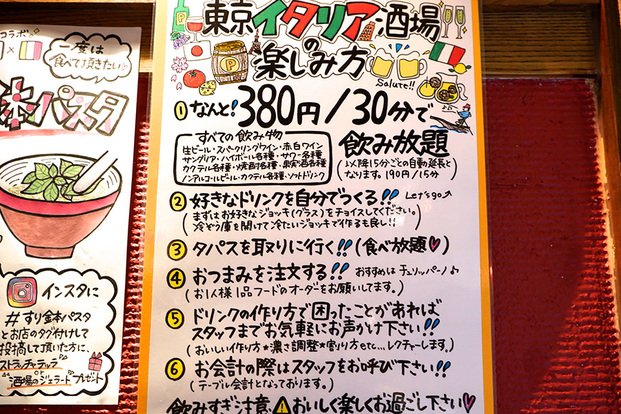 コラボ
×
一度は
食べて頂きたい
本パスタ
インスタに
#すり金本パスタ
とお店のタグ付けして
投稿して頂いた方に、
ストラッチャテッラ
酒場のジェラートプレゼント
東京イタリア酒場
の
楽しみ方
P
Salute!!
①なんと!380円/30分で
飲み放題
すべての飲み物
生ビール・スパークリングワイン・赤白ワイン
サングリア・ハイボール各種・サワー各種
カクテル各種・焼酎各種・果実酒各種
ノンアルコールビール・カクテル各種・ソフトドリンク
以降15分ごとの自動延長と
なります。190円/15分
②好きなドリンクを自分でつくる!! Let's go
(まずはお好きなジョッキ(グラス)をチョイスしてください。
冷やり庫を開けて冷たいジョッキで作るも良し!!)
③タパスを取りに行く!!(食べ放題♡)
④おつまみを注文する!! おすすめはチュリッパーノ♪
(お1人様1品フードのオーダーをお願いしてます。)
⑤ドリンクの作り方で困ったことがあれば
スタッフまでお気軽にお声かけ下さい!!
(おいしい作り方*濃さ調整*割り方etc...レクチャーします。)
⑥お会計の際はスタッフをお呼び下さい!!
(テーブル会計となっております。)
飲みすぎ注意⚠おいしく楽しくお過ごし下さい♡